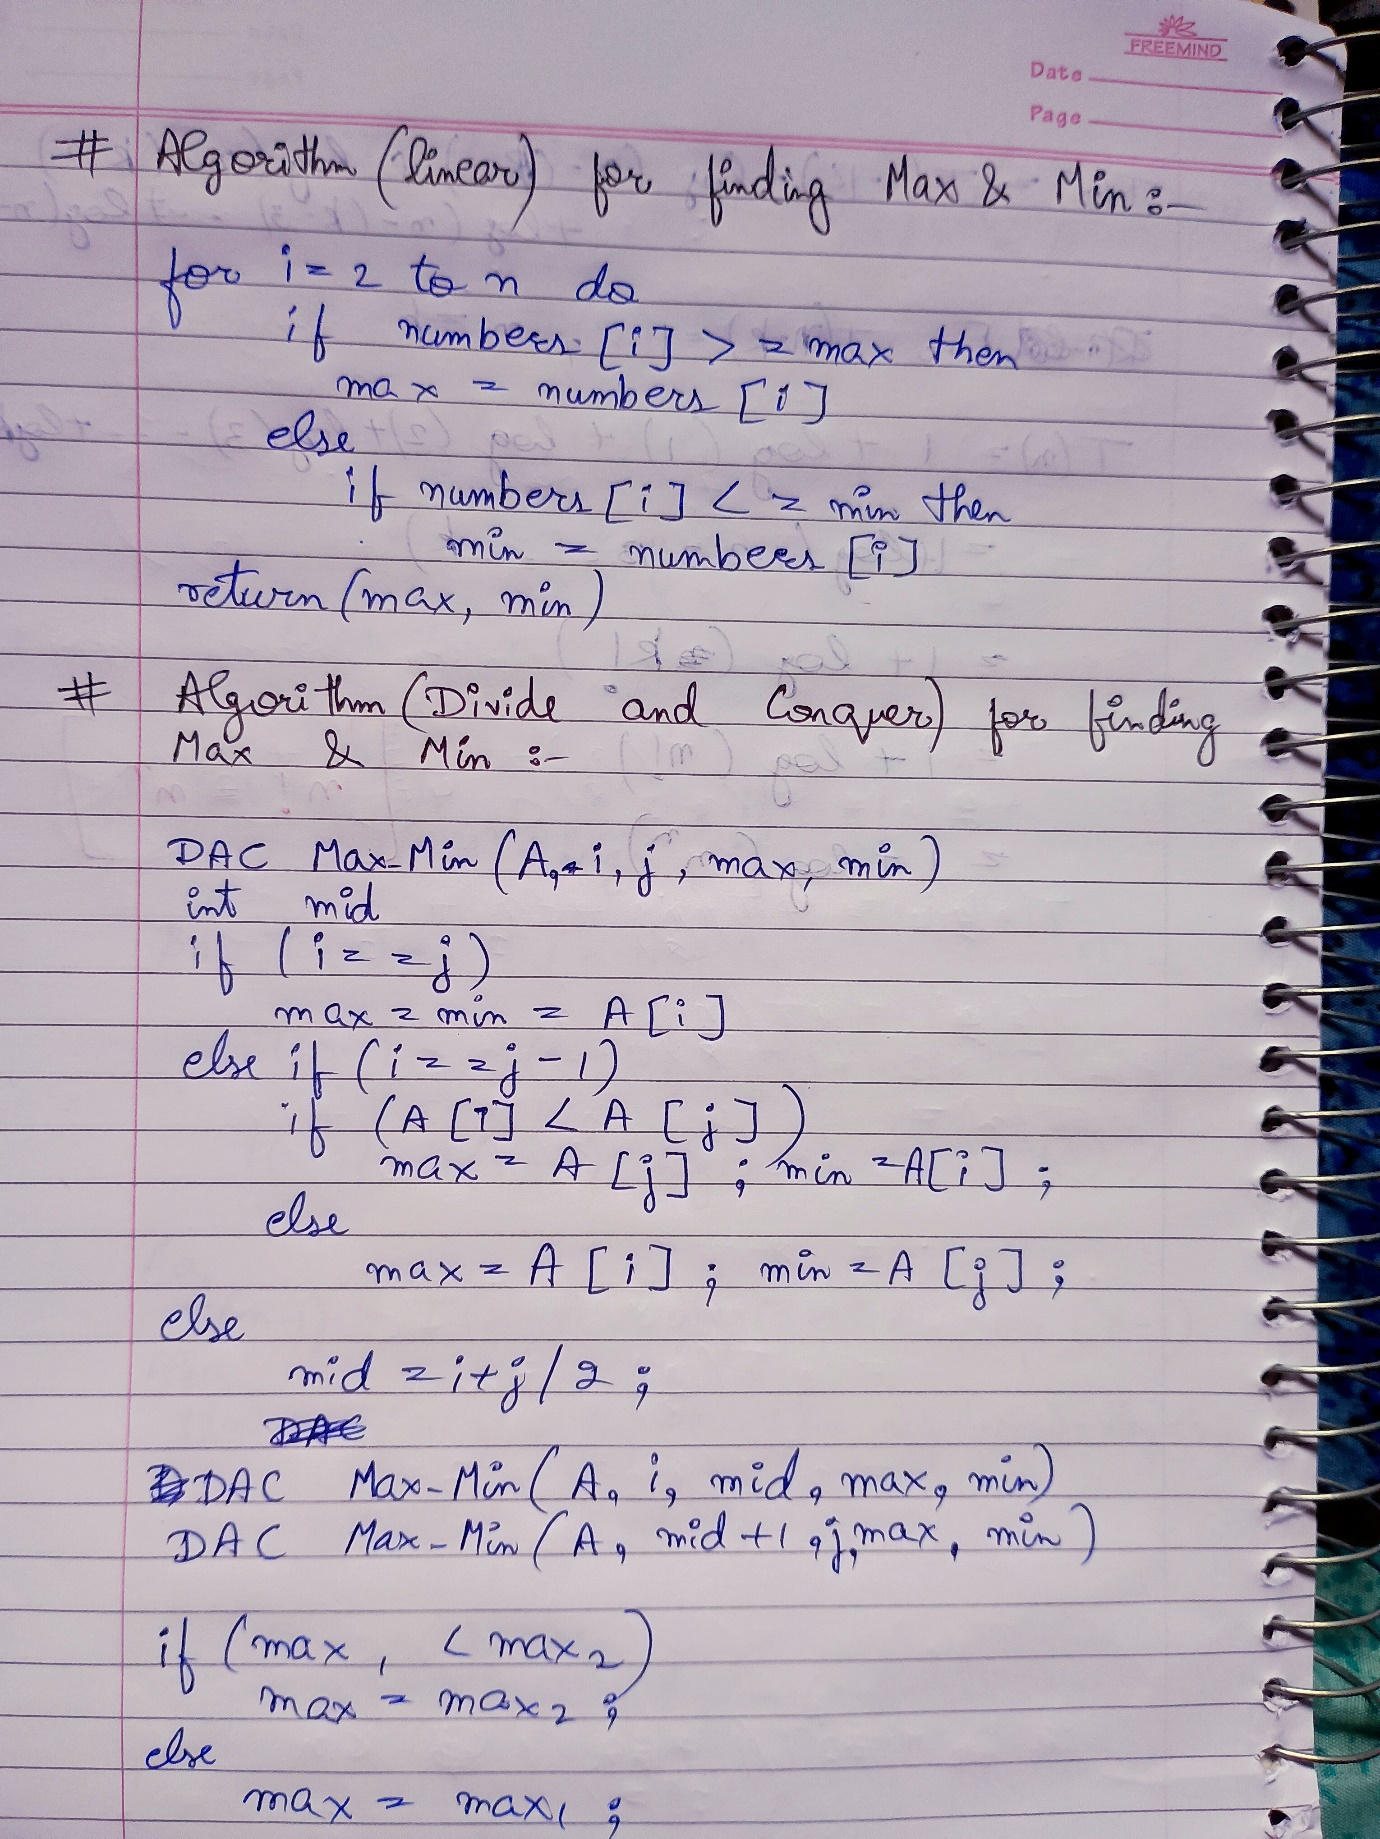 FREEMIND
Date
Page
# Algorithm (linear) for finding Max & Min :-
for i = 2 to n do
if numbers [i] > = max then
max = numbers [i]
else
if numbers [i] < = min then
min = numbers [i]
return (max, min)
# Algorithm (Divide and Conquer) for finding
Max & Min :-
DAC Max-Min (A, i, j, max, min)
int mid
if (i = = j)
max = min = A [i]
else if (i = = j - 1)
if (A [i] < A [j])
max = A [j] ; min = A[i] ;
else
max = A [i] ; min = A [j] ;
else
mid = i + j / 2 ;
DAC
DAC Max-Min (A, i, mid, max, min)
DAC Max-Min (A, mid + 1, j, max, min)
if (max₁ < max₂)
max = max₂ ;
else
max = max₁ ;